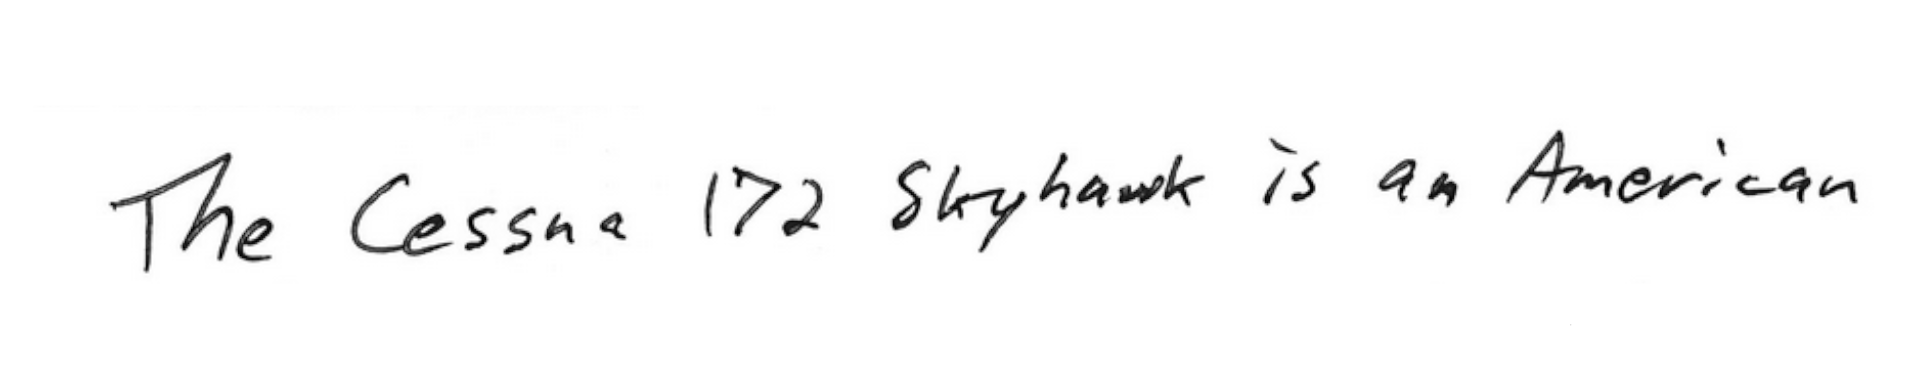 The Cessna 172 Skyhawk is an American